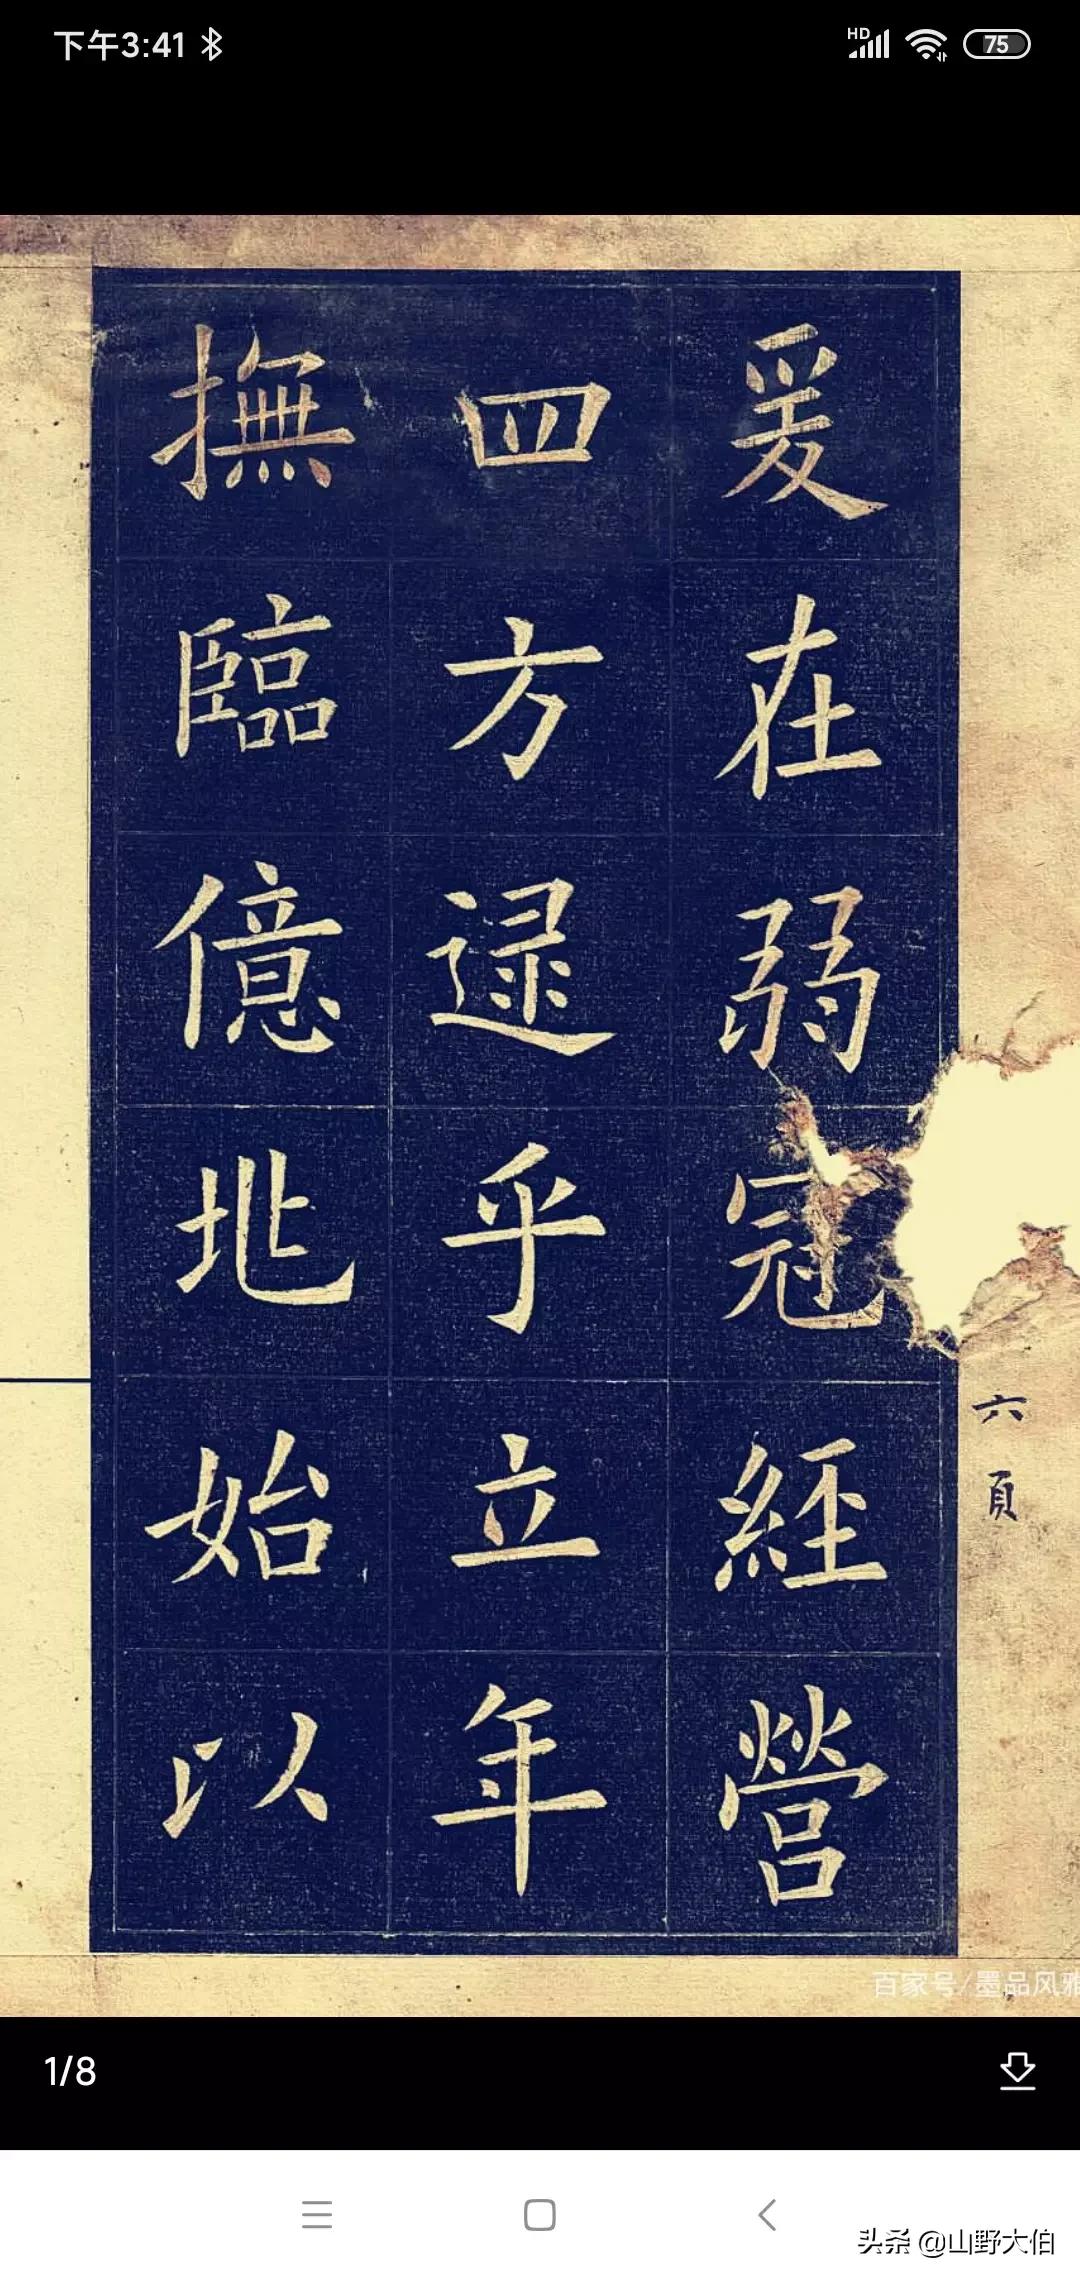 下午3:41
HD
75
爰在弱冠經營
四方逯乎立年
撫臨億兆始以
六頁
百家号/墨品风雅
1/8
头条 @山野大伯